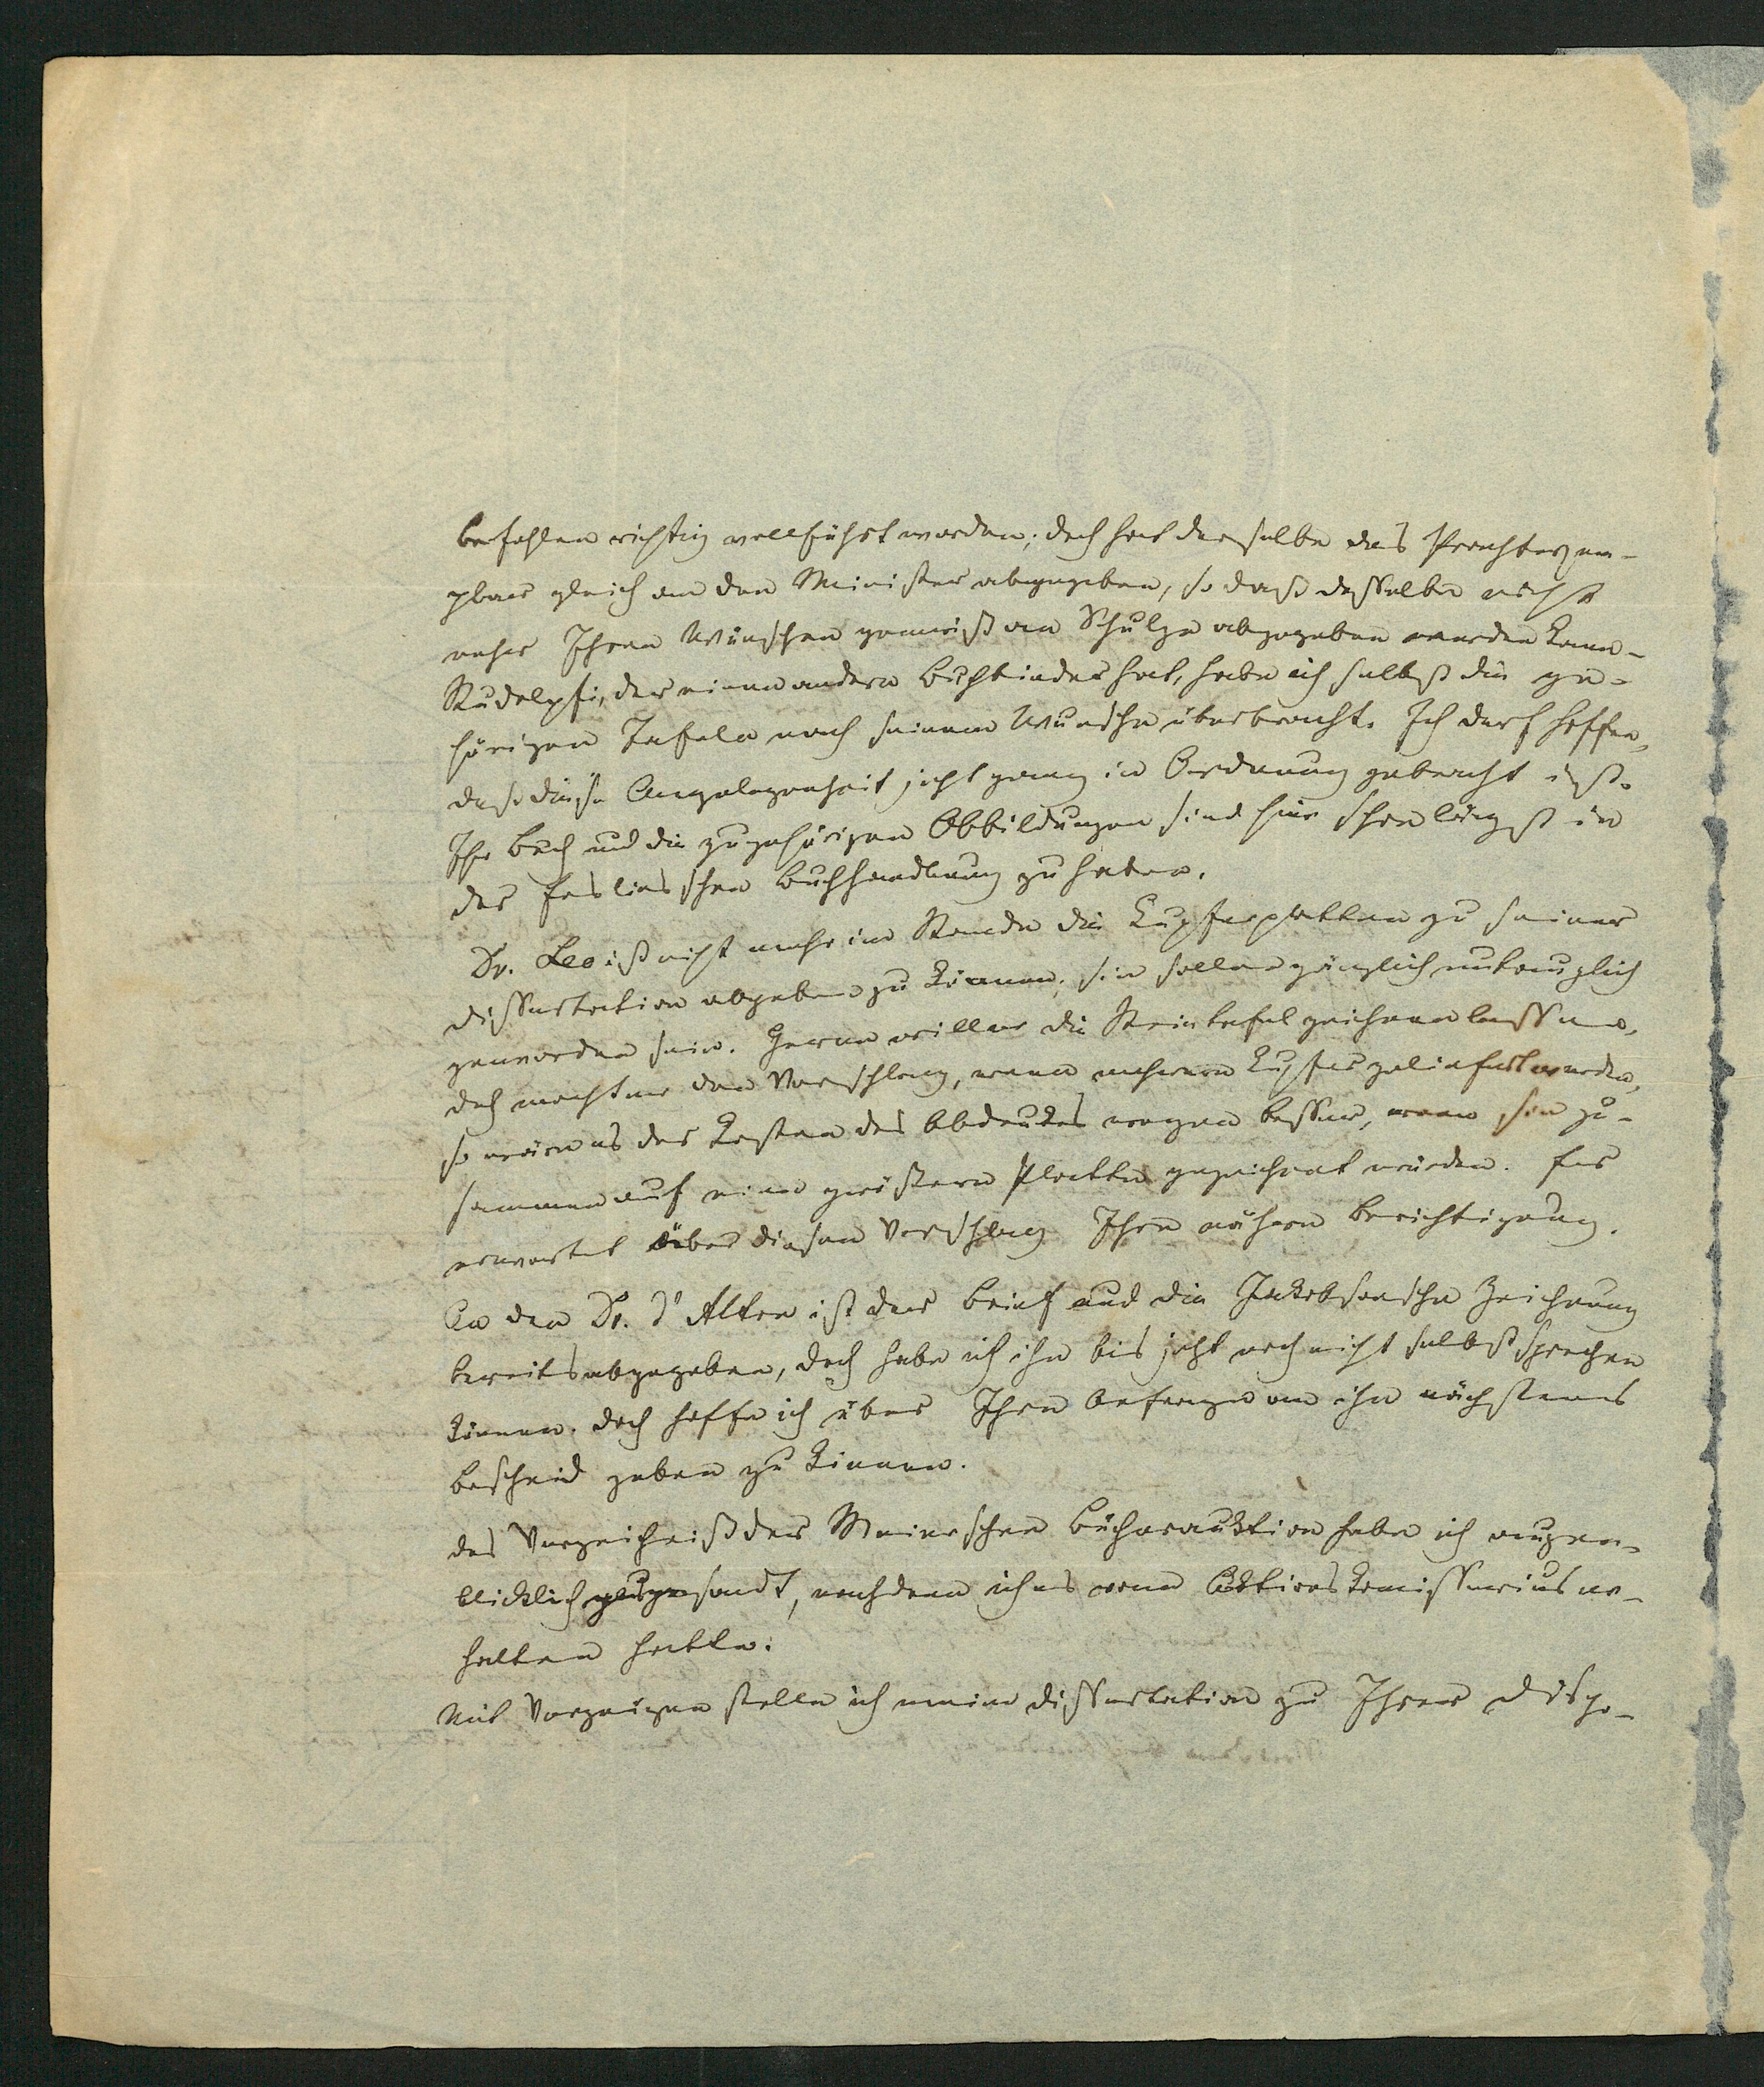 befohlen richtig vollführt worden; doch hat derselbe das Prachtexem-
plar gleich an den Minister abgegeben, so daß dasselbe nicht
mehr Ihren Wünschen gemäß an Schulze abgegeben werden kann.
Rudolphi, der einen andern Buchbinder hat, habe ich selbst die ge-
hörigen Tafeln nach seinem Wunsche überbracht. Ich darf hoffen,
daß diese Angelegenheit jetzt ganz in Ordnung gebracht ist.
Ihr Buch und die zugehörigen Abbildungen sind hier schon längst in
der Enslinschen Buchhandlung zu haben.
Dr. Leo ist nicht mehr im Stande die Kupferplatten zu seiner
Dissertation abgeben zu können; sie sollen gänzlich untauglich
geworden sein. Gerne will er die Steintafel zeichnen lassen,
doch macht er den Vorschlag, wenn mehrere Kupfer geliefert werden,
so wäre es der Kosten des Abdrucks wegen besser, wenn sie zu-
sammen auf einer größern Platte gezeichnet würden. Er
erwartet über diesen Vorschlag Ihre nähere Berichtigung.
An den Dr. d'Alton ist der Brief und die Jakobsonsche Zeichnung
bereits abgegeben, doch habe ich ihn bis jetzt noch nicht selbst sprechen
können. Doch hoffe ich über Ihre Anfrage an ihn nächstens
Bescheid geben zu können.
Das Verzeichniß der Meierschen Bücherauktion habe ich augen-
blicklich gesandt, nachdem ich es vom Auktionskommissarius er-
halten hatte.
Mit Vergnügen stelle ich meine Dissertation zu Ihrer Dispo-